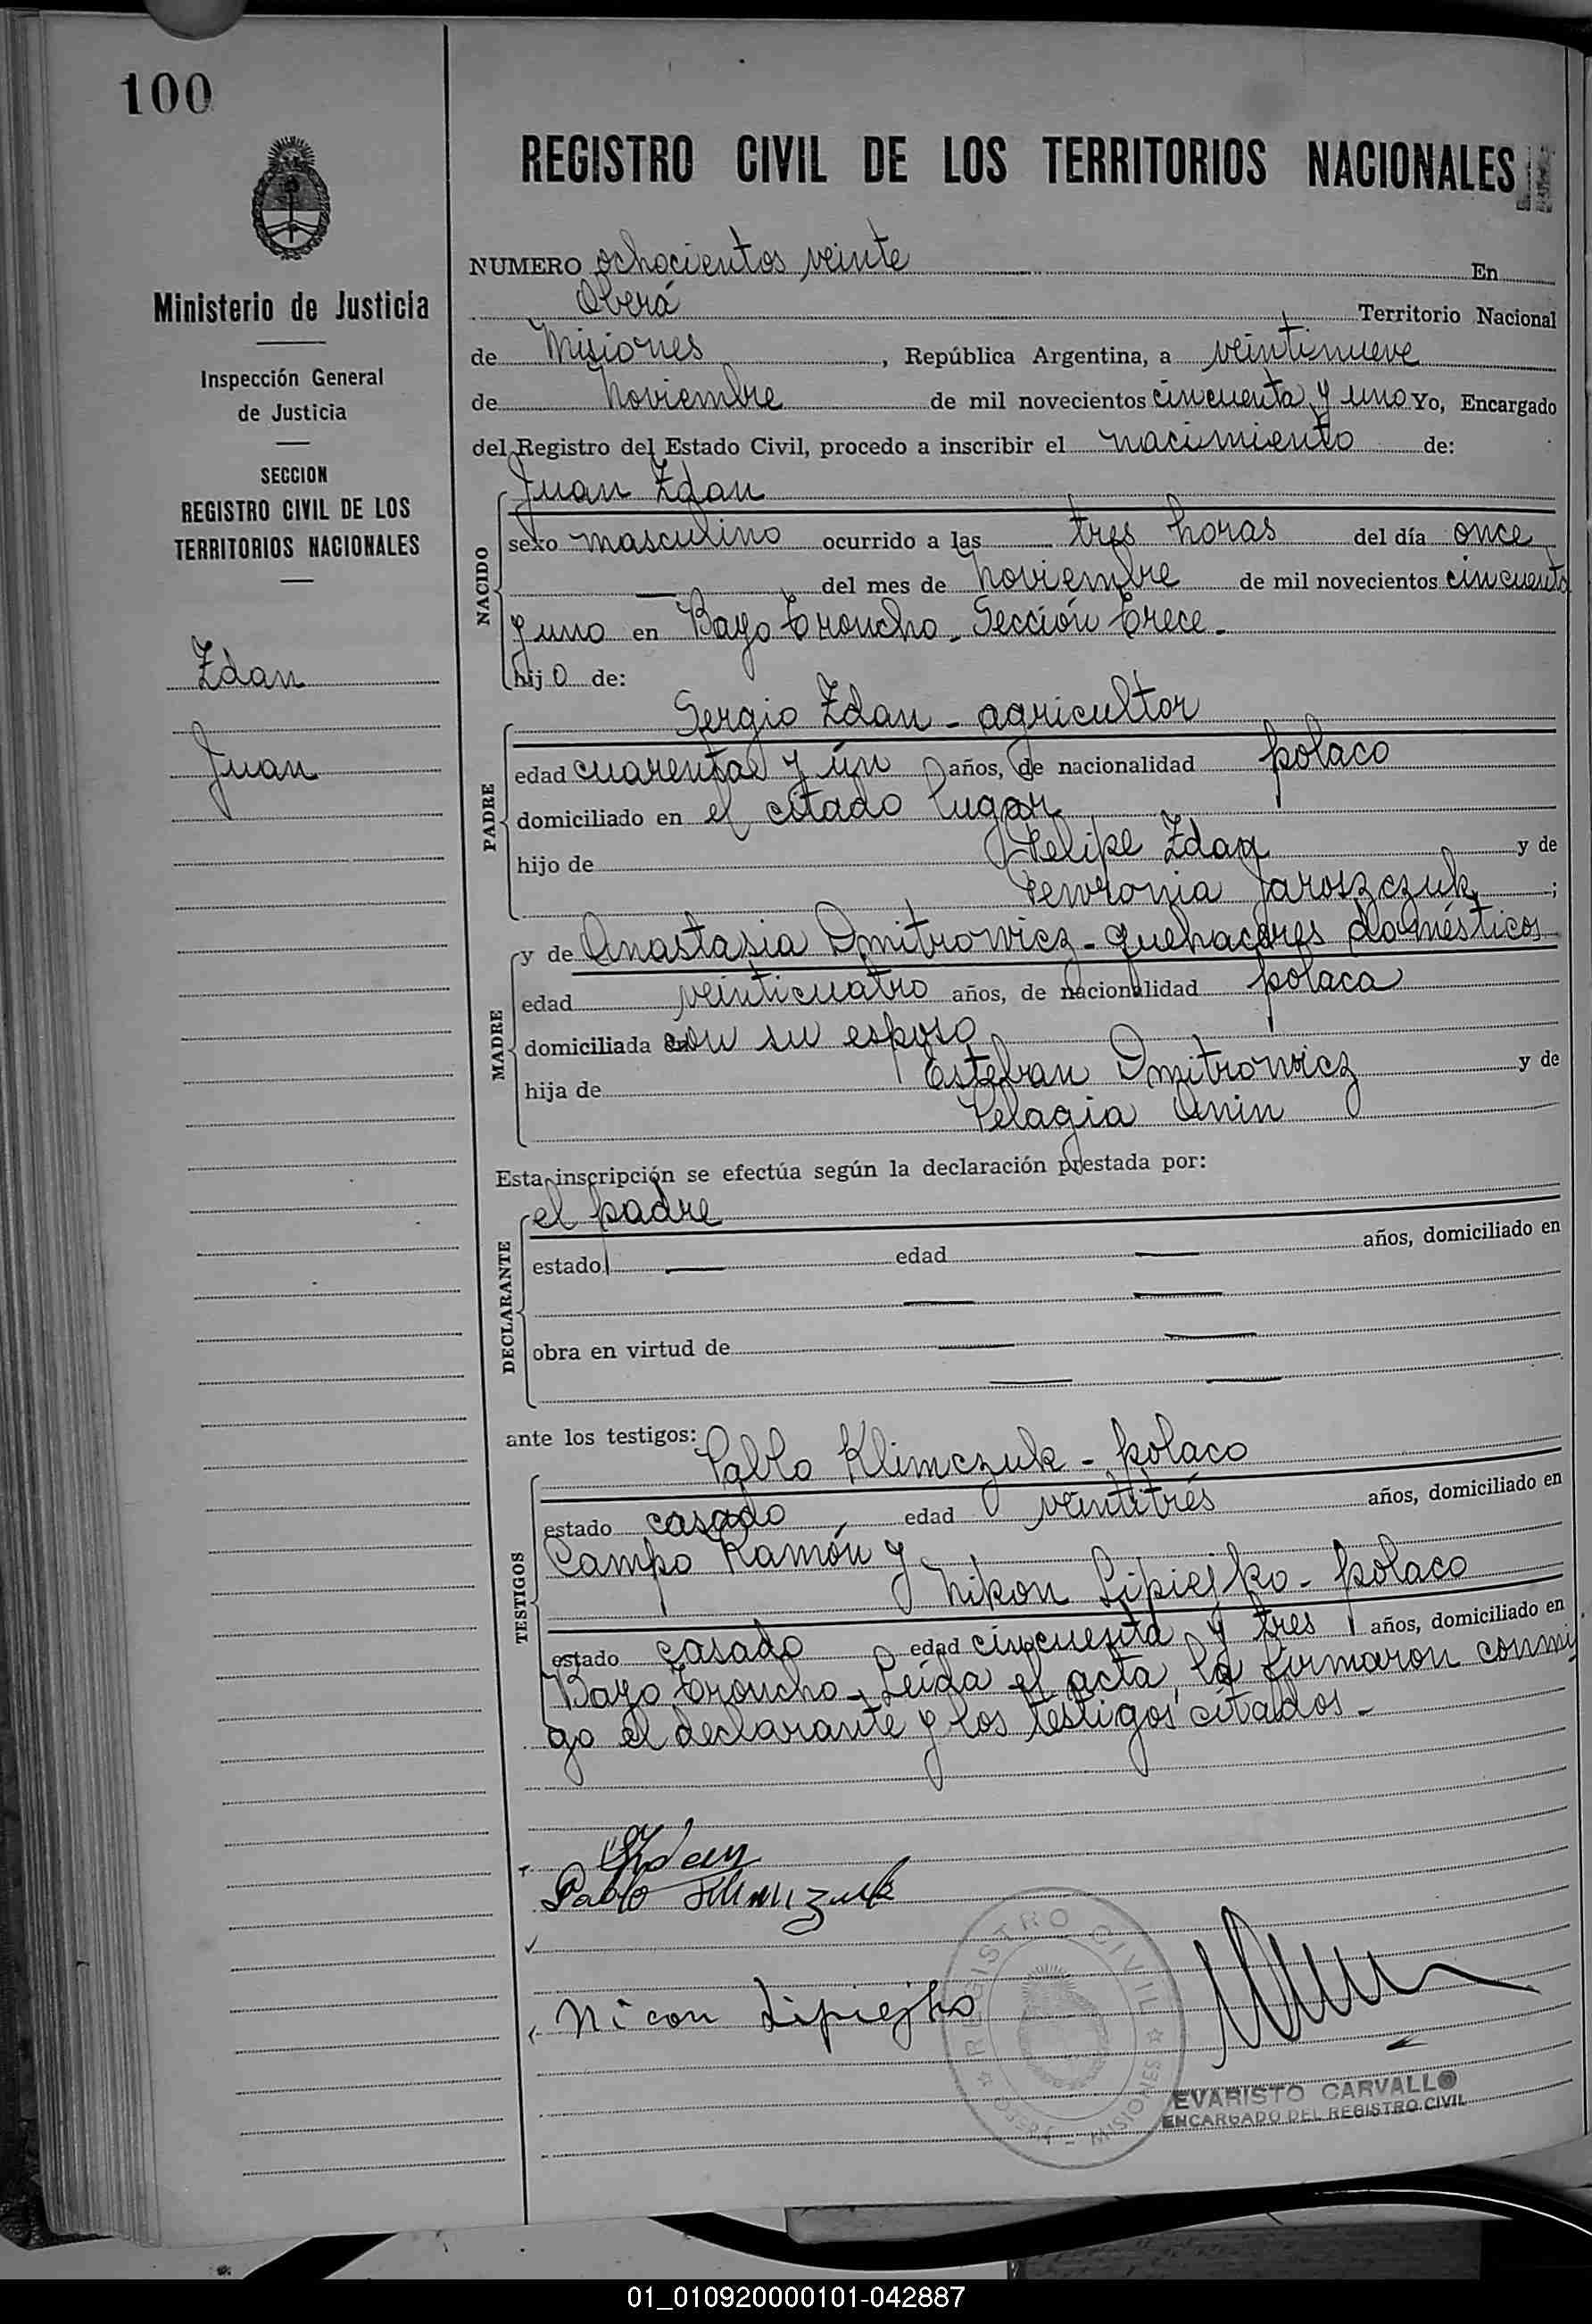 100
REGISTRO CIVIL DE LOS TERRITORIOS NACIONALES
Ministerio de Justicia
Inspección General
de Justicia
SECCION
REGISTRO CIVIL DE LOS
TERRITORIOS NACIONALES
Zdan
Juan
NUMERO ochocientos veinte En
Oberá Territorio Nacional
de Misiones, República Argentina, a veintinueve
de Noviembre de mil novecientos cincuenta y uno Yo, Encargado
del Registro del Estado Civil, procedo a inscribir el nacimiento de:
NACIDO
Juan Zdan
sexo masculino ocurrido a las tres horas del día once
— del mes de Noviembre de mil novecientos cincuenta
y uno en Bayo Troncho - Sección Trece -
hijo de:
PADRE
Sergio Zdan - agricultor
edad cuarenta y ún años, de nacionalidad polaco
domiciliado en el citado lugar
hijo de Felipe Zdan y de
Fewronia Jaroszczuk ;
MADRE
y de Anastasia Dmitrowicz - quehaceres domésticos
edad veinticuatro años, de nacionalidad polaca
domiciliada con su esposo
hija de Esteban Dmitrowicz y de
Pelagia Anin
Esta inscripción se efectúa según la declaración prestada por:
DECLARANTE
el padre
estado — edad — años, domiciliado en
— —
obra en virtud de — —
— —
ante los testigos:
TESTIGOS
Pablo Klimczuk - polaco
estado casado edad veintitrés años, domiciliado en
Campo Ramón y
Nikon Lipiejko - polaco
estado casado edad cincuenta y tres años, domiciliado en
Bayo Troncho - Leída el acta, la firmaron conmi
go el declarante y los testigos citados -
Zdan
Pablo Klimczuk
Nicon Lipiejko
REGISTRO CIVIL
OBERÁ - MISIONES
EVARISTO CARVALLO
ENCARGADO DEL REGISTRO CIVIL
01_010920000101-042887